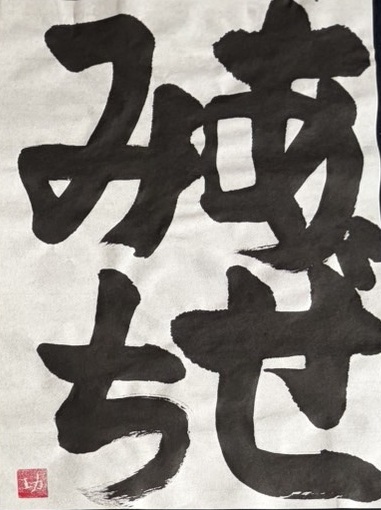 あぜ
みち
功